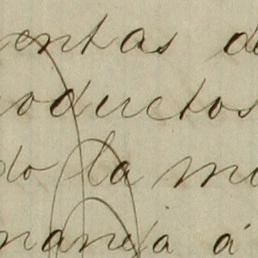 entas de
oductos
do la m
naneja á